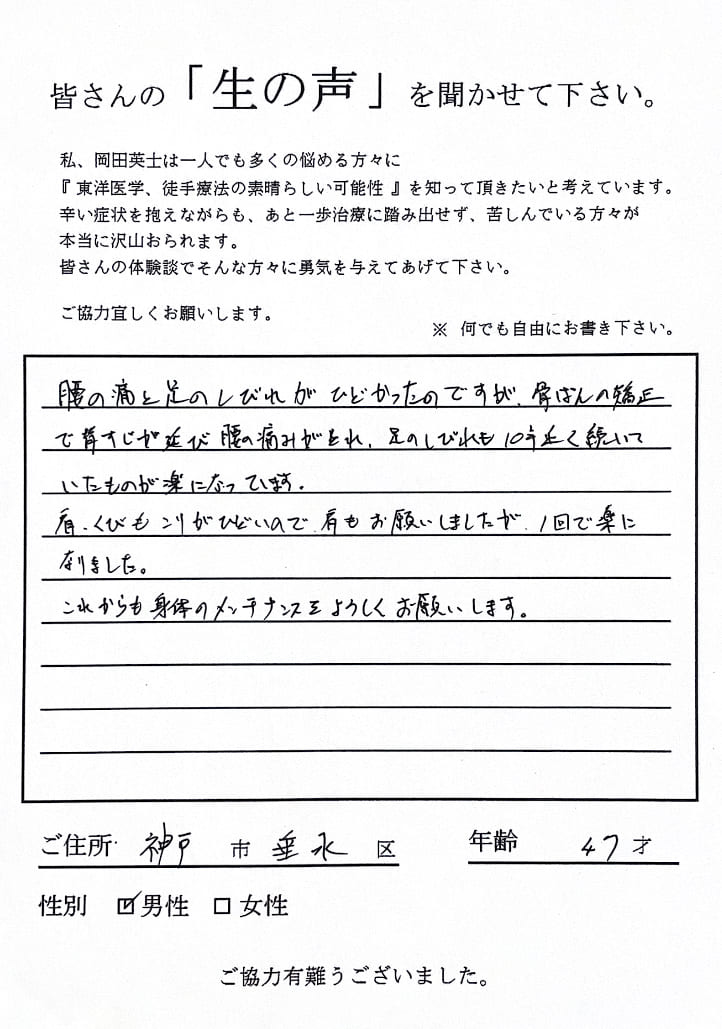 皆さんの「生の声」を聞かせて下さい。
私、岡田英士は一人でも多くの悩める方々に
『 東洋医学、徒手療法の素晴らしい可能性 』を知って頂きたいと考えています。
辛い症状を抱えながらも、あと一歩治療に踏み出せず、苦しんでいる方々が
本当に沢山おられます。
皆さんの体験談でそんな方々に勇気を与えてあげて下さい。
ご協力宜しくお願いします。
※ 何でも自由にお書き下さい。
腰の痛と足のしびれがひどかったのですが、骨ばんの矯正
で背すじが延び腰の痛みがとれ、足のしびれも10年近く続いて
いたものが楽になっています。
肩、くびもこりがひどいので、肩もお願いしましたが、1回で楽に
なりました。
これからも身体のメンテナンスをよろしくお願いします。
ご住所 神戸 市 垂水 区
年齢 47才
性別 ☑男性 □女性
ご協力有難うございました。